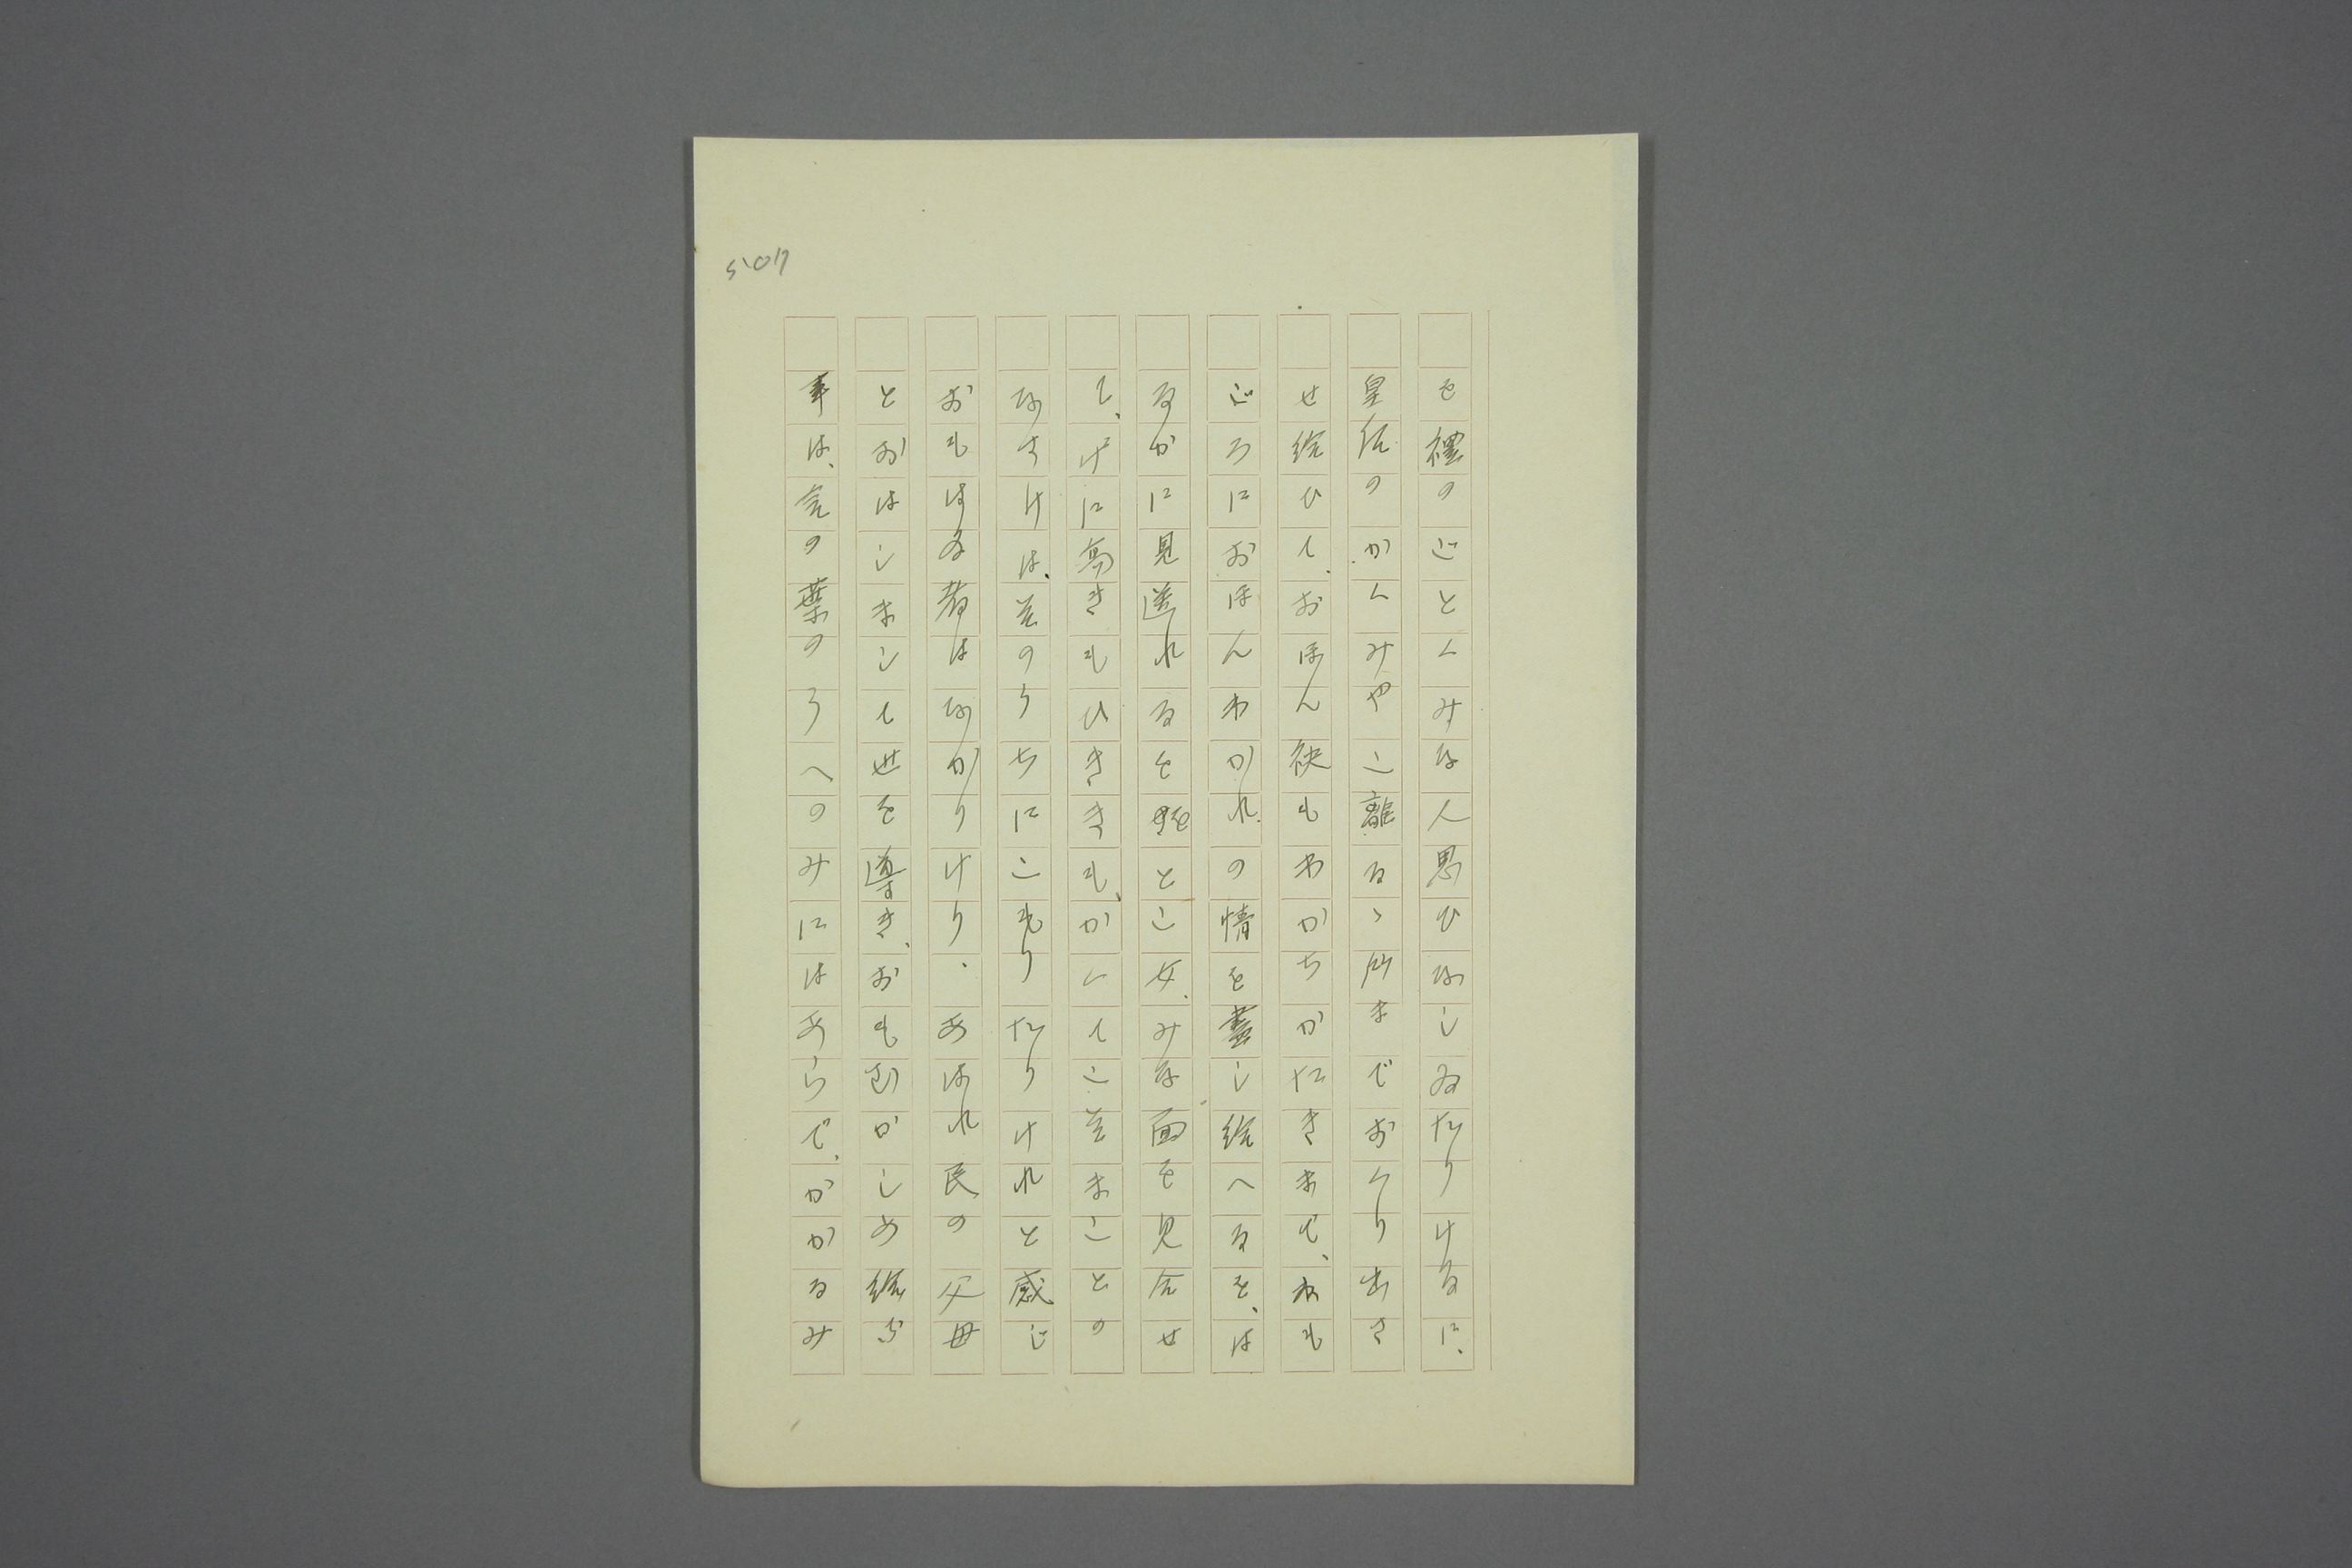 5017
を禮のごとくみな人思ひなしゐたりけるに、
皇后のかくみやこ離るゝ所までおくり出さ
せ給ひて、おほん袂もわかちかたきまで、ねも
ごろにおほんわかれの情を盡し給へるを、は
るかに見送れるをとこ女、みな面を見合せ
て、げに高きもひききも、かくてこそまことの
なさけは、そのうちにこもりたりけれと感じ
おもはぬ者はなかりけり、あはれ民の父母
とおはしまして世を導き、おもむかしめ給ふ
事は、言の葉のうへのみにはあらで、かかるみ